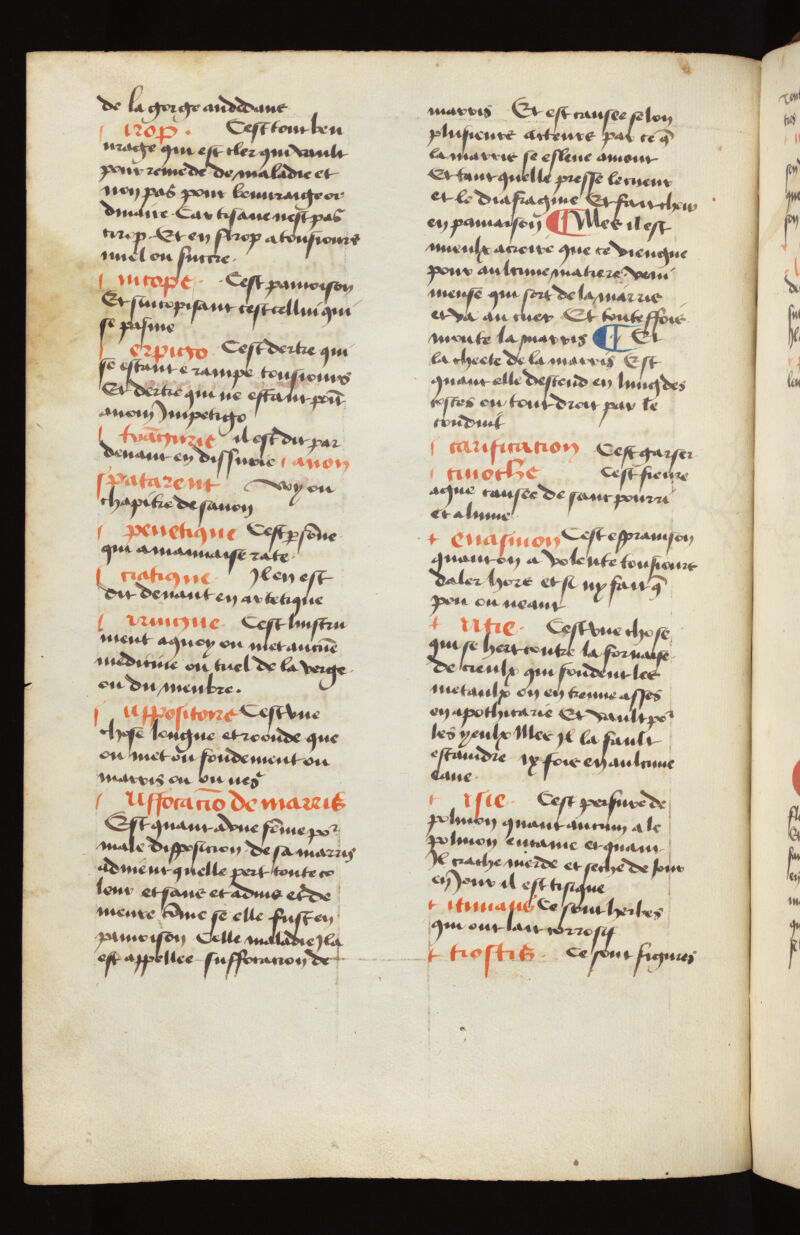 de la gorge audedans
irop . Cest tout beu
urage qui est cler qui vault
pour remede de maladie et
non pas pour beuvraige or
dinaire . Car tisane nest pas
cirop . Et en sirop a tousiours
miel ou succre .
incope . Cest pamoison
Et sincopisant cest cellui qui
se pasme
erpigo Cest dertre qui
se estant e rampe tousiours
Et dertre qui ne estant point
a nom Impetigo
tranguirie il est dit par
devant en dissurie
spatarent voy ou
chapitre de savon
penetique Cest psone
qui a mauuaise rate .
ciatique Il en est
dit devant en artetique
iringue . Cest linstru
ment a quoy on met aucune
medicine ou tuel de la verge
ou du menbre .
uppositoire Cest vne
chose longue et roonde que
on met ou fondement ou
marris ou ou nes
uffocacio de marris
Est quant a une feme por
male disposicion de sa marris
advient quelle pert toute co
leur et sans et advis et de
meure come se elle fust en
pamoison Celle maladie Jla
est appellee suffocacion de
marris Et est causee selon
plusieurs acteurs par ce q
la marris se eslieve amont
Et tant quelle presse le cueur
et le diafragme Et fait cheir
en pamoison Mes il est
mieulx a croire que ce viengne
pour aulcune matiere veni
meuse qui sort de la marris
et va au cuer Et touteffois
monte la marris Et
la cheete de la marris Est
quant elle descend en lung des
costes ou tout droit par le
conduit
carification Cest garser
cinoche Cest fieure
ague causee de sanc pourri
et alume
enasmon Cest esprainson
quant on a volente tousiours
daler hors et si ny fait q
pou ou neant
utie . Cest vne chose
qui se hert contre la fornaise
de ceulx qui fondent les
metaulx on en treuue asses
en apothicarie Et vault por
les yeulx Mes Jl la fault
estaindre ix fois en aulcune
eaue .
isie . Cest persure de
polmon quant aucun a le
polmon entame et quant
Jl crache merde et seche de jour
en Jour il est tisique
itimaus Ce sont herbes
qui ont lait corrosif
tiostis . Ce sont figures